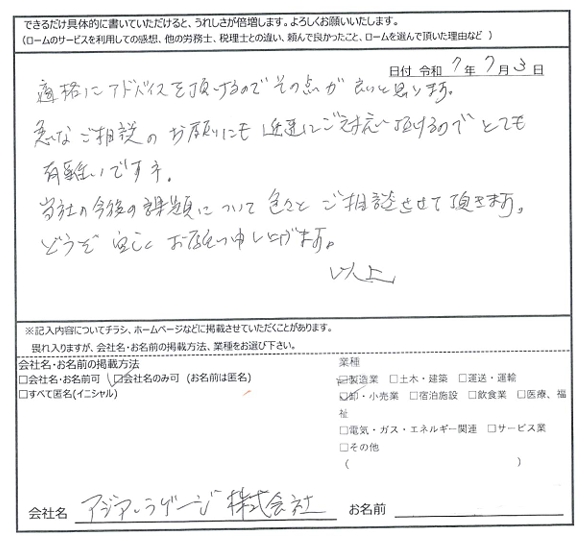 できるだけ具体的に書いていただけると、うれしさが倍増します。よろしくお願いいたします。
（ロームのサービスを利用しての感想、他の労務士、税理士との違い、頼んで良かったこと、ロームを選んで頂いた理由など ）
日付 令和 7年 7月 3日
適格にアドバイスを頂けるのでその点が良いと思います。
急なご相談のお願いにも迅速にご対応頂けるのでとても
有難いですネ。
当社の今後の課題について色々とご相談させて頂きます。
どうぞ宜しくお願い申し上げます。
以上
※記入内容についてチラシ、ホームページなどに掲載させていただくことがあります。
畏れ入りますが、会社名・お名前の掲載方法、業種をお選び下さい。
会社名・お名前の掲載方法
□会社名・お名前可 ☑会社名のみ可 （お名前は匿名）
□すべて匿名(イニシャル)
業種
☑製造業 □土木・建築 □運送・運輸
☑卸・小売業 □宿泊施設 □飲食業 □医療、福
祉
□電気・ガス・エネルギー関連 □サービス業
□その他
（ ）
会社名 アジア・ラゲージ株式会社 お名前